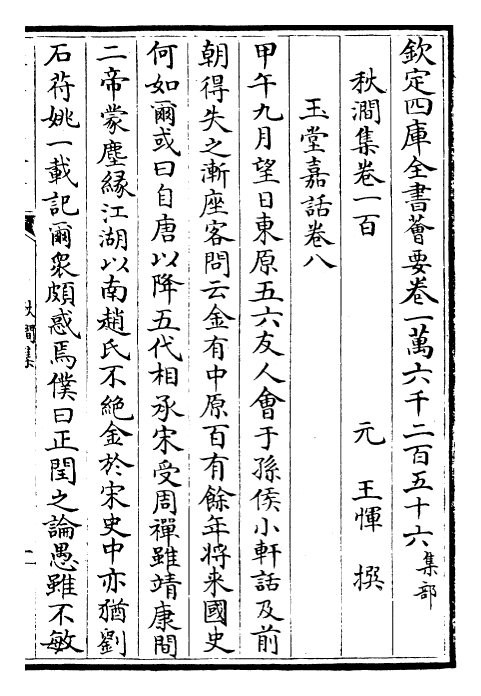 欽定四庫全書薈要卷一萬六千二百五十六集部
秋澗集卷一百　元　王惲　撰
玉堂嘉話卷八
甲午九月望日東原五六友人會于孫侯小軒話及前
朝得失之漸座客問云金有中原百有餘年將来國史
何如爾或曰自唐以降五代相承宋受周禪雖靖康間
二帝蒙塵縁江湖以南趙氏不絶金於宋史中亦猶劉
石苻姚一載記爾衆頗惑焉僕曰正閏之論愚雖不敏
秋澗集